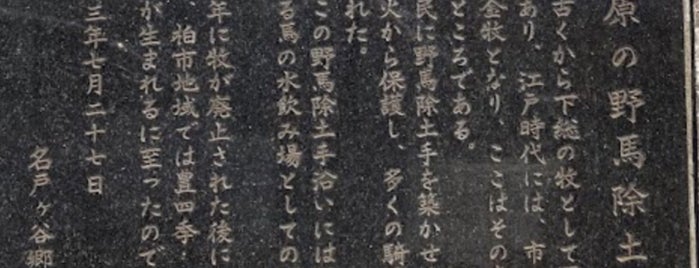 原の野馬除土
古くから下総の牧として
あり、江戸時代には、市
金牧となり、ここはその
ところである。
民に野馬除土手を築かせ
火から保護し、多くの騎
れた。
この野馬除土手沿いには
る馬の水飲み場としての
年に牧が廃止された後に
柏市地域では豊四季
が生まれるに至ったので
三年七月二十七日
名戸ヶ谷郷